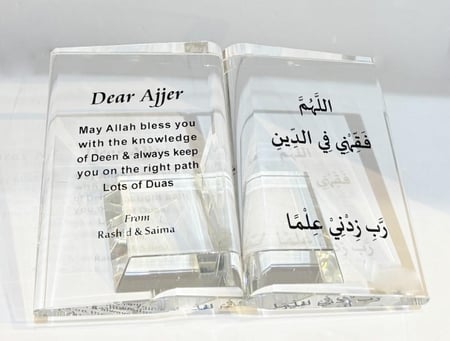 Dear Ajjer
May Allah bless you
with the knowledge
of Deen & always keep
you on the right path
Lots of Duas
From
Rashid & Saima
اللَّهُمَّ
فَقِّهْنِي فِي الدِّينِ
رَبِّ زِدْنِيْ عِلْمًا